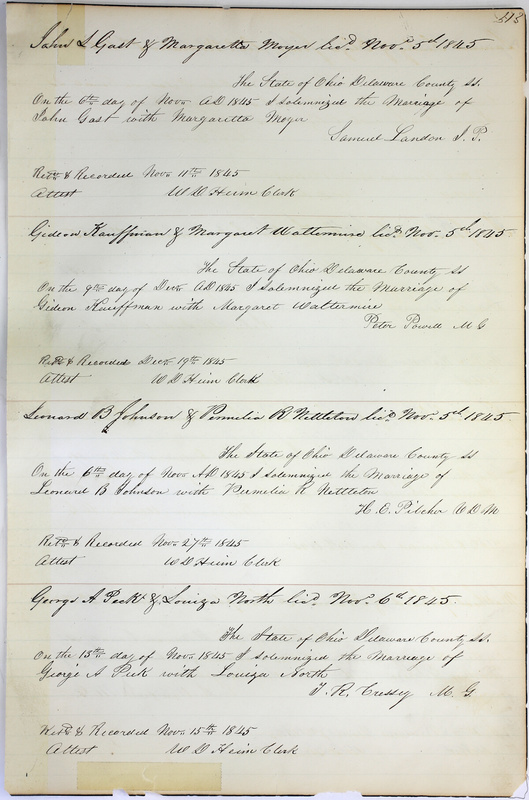 313
John L Gast & Margaretta Moyer lic.d Nov. 5d 1845
The State of Ohio Delaware County ss.
On the 6th day of Nov. AD 1845 I solemnized the Marriage of
John Gast with Margaritta Moyer
Samuel Landon J. P.
Retd & Recorded Nov. 11th 1845
Attest W D Heim Clerk
Gideon Kauffman & Margaret Wattermire lic.d Nov. 5d 1845
The State of Ohio Delaware County ss
On the 9th day of Dec. AD 1845 I Solemnized the Marriage of
Gideon Kauffman with Margaret Wattermire
Peter Powell M G
Retd & Recorded Dec. 19th 1845
Attest W D Heim Clerk
Leonard B Johnson & Permelia R Nettleton lic.d Nov. 5d 1845
The State of Ohio Delaware County ss
On the 6th day of Nov. AD 1845 I solemnized the Marriage of
Leonard B Johnson with Permelia R Nettleton
H. E. Pilcher V D M
Retd & Recorded Nov. 27th 1845
Attest W D Heim Clerk
George A Peck & Louiza North lic.d Nov. 6d 1845.
The State of Ohio Delaware County ss.
On the 15th day of Nov. 1845 I solemnized the Marriage of
George A Peck with Louiza North
T. R. Cressey M. G.
Retd & Recorded Nov. 15th 1845
Attest W D Heim Clerk